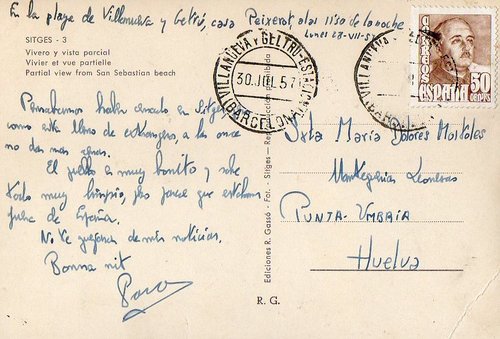 En la playa de Villanueva y Geltrú, casa Peixerot, a las 11'30 de la noche
Lunes 29-VII-57
SITGES - 3
Vivero y vista parcial
Vivier et vue partielle
Partial view from San Sebastian beach
VILLANUEVA Y GELTRU-ESTACION
30 JUL 57
(BARCELONA)
CORREOS
ESPAÑA
50
CENTIMOS
Pensabamos haber cenado en Sitges
como está lleno de extranjeros, a las once
no dan mas cenas.
El pueblo es muy bonito y sobre
todo muy limpio, pero parece que estamos
fuera de España.
No te quejarás de mis noticias.
Bonna nit
Paco
Ediciones R. Gassó - Fot. - Sitges - Reproducción prohibida
Srta María Dolores Mortoles
Ultramarinos Leoneses
PUNTA-UMBRIA
Huelva
R. G.